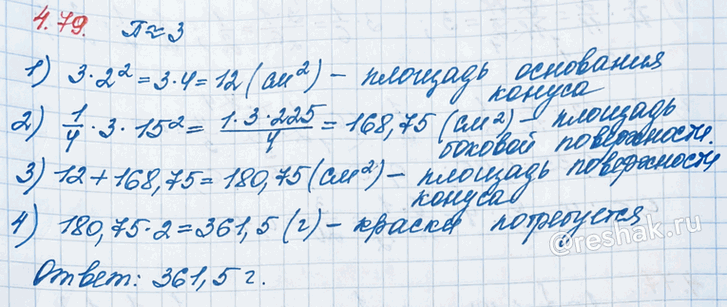 4.79. π≈3
1) 3·2² = 3·4 = 12 (см²) – площадь основания
конуса
2) 1/4 · 3 · 15² = (1·3·225)/4 = 168,75 (см²) – площадь
боковой поверхности.
3) 12 + 168,75 = 180,75 (см²) – площадь поверхности
конуса
4) 180,75·2 = 361,5 (г) – краски потребуется
©reshak.ru
Ответ: 361,5 г.